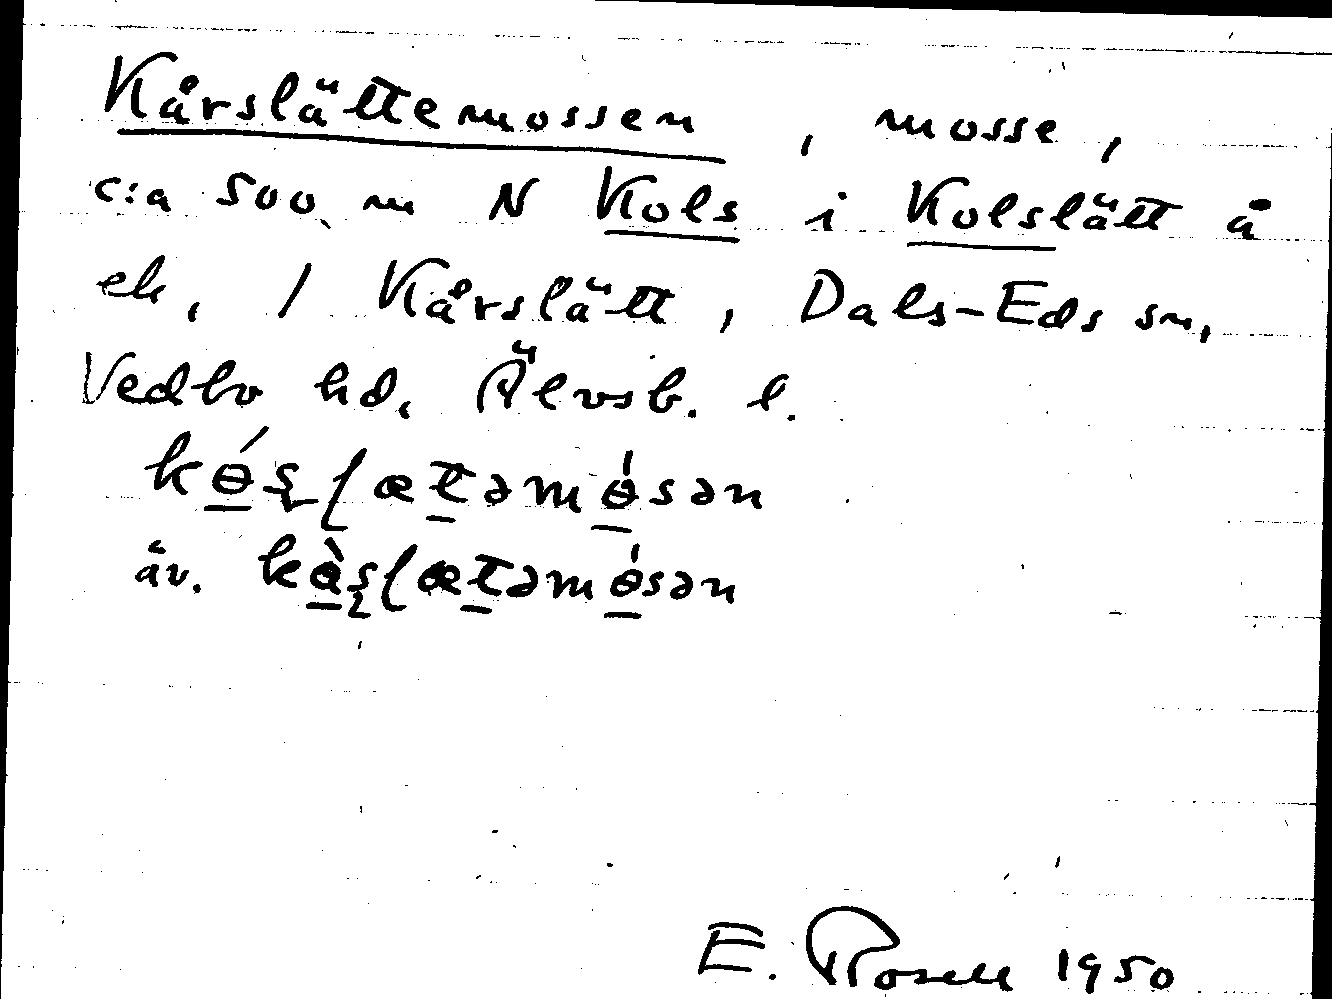 Kårslättemossen, mosse,
c:a 500 m N Kols i Kolslätt å
ek, / Kårslätt, Dals-Eds sn,
Vedbo hd, Älvsb. l.
kɵ́s̨lætəmɵ́sən
äv. kàs̨lætəmɵ́sən
E. Rosell 1950